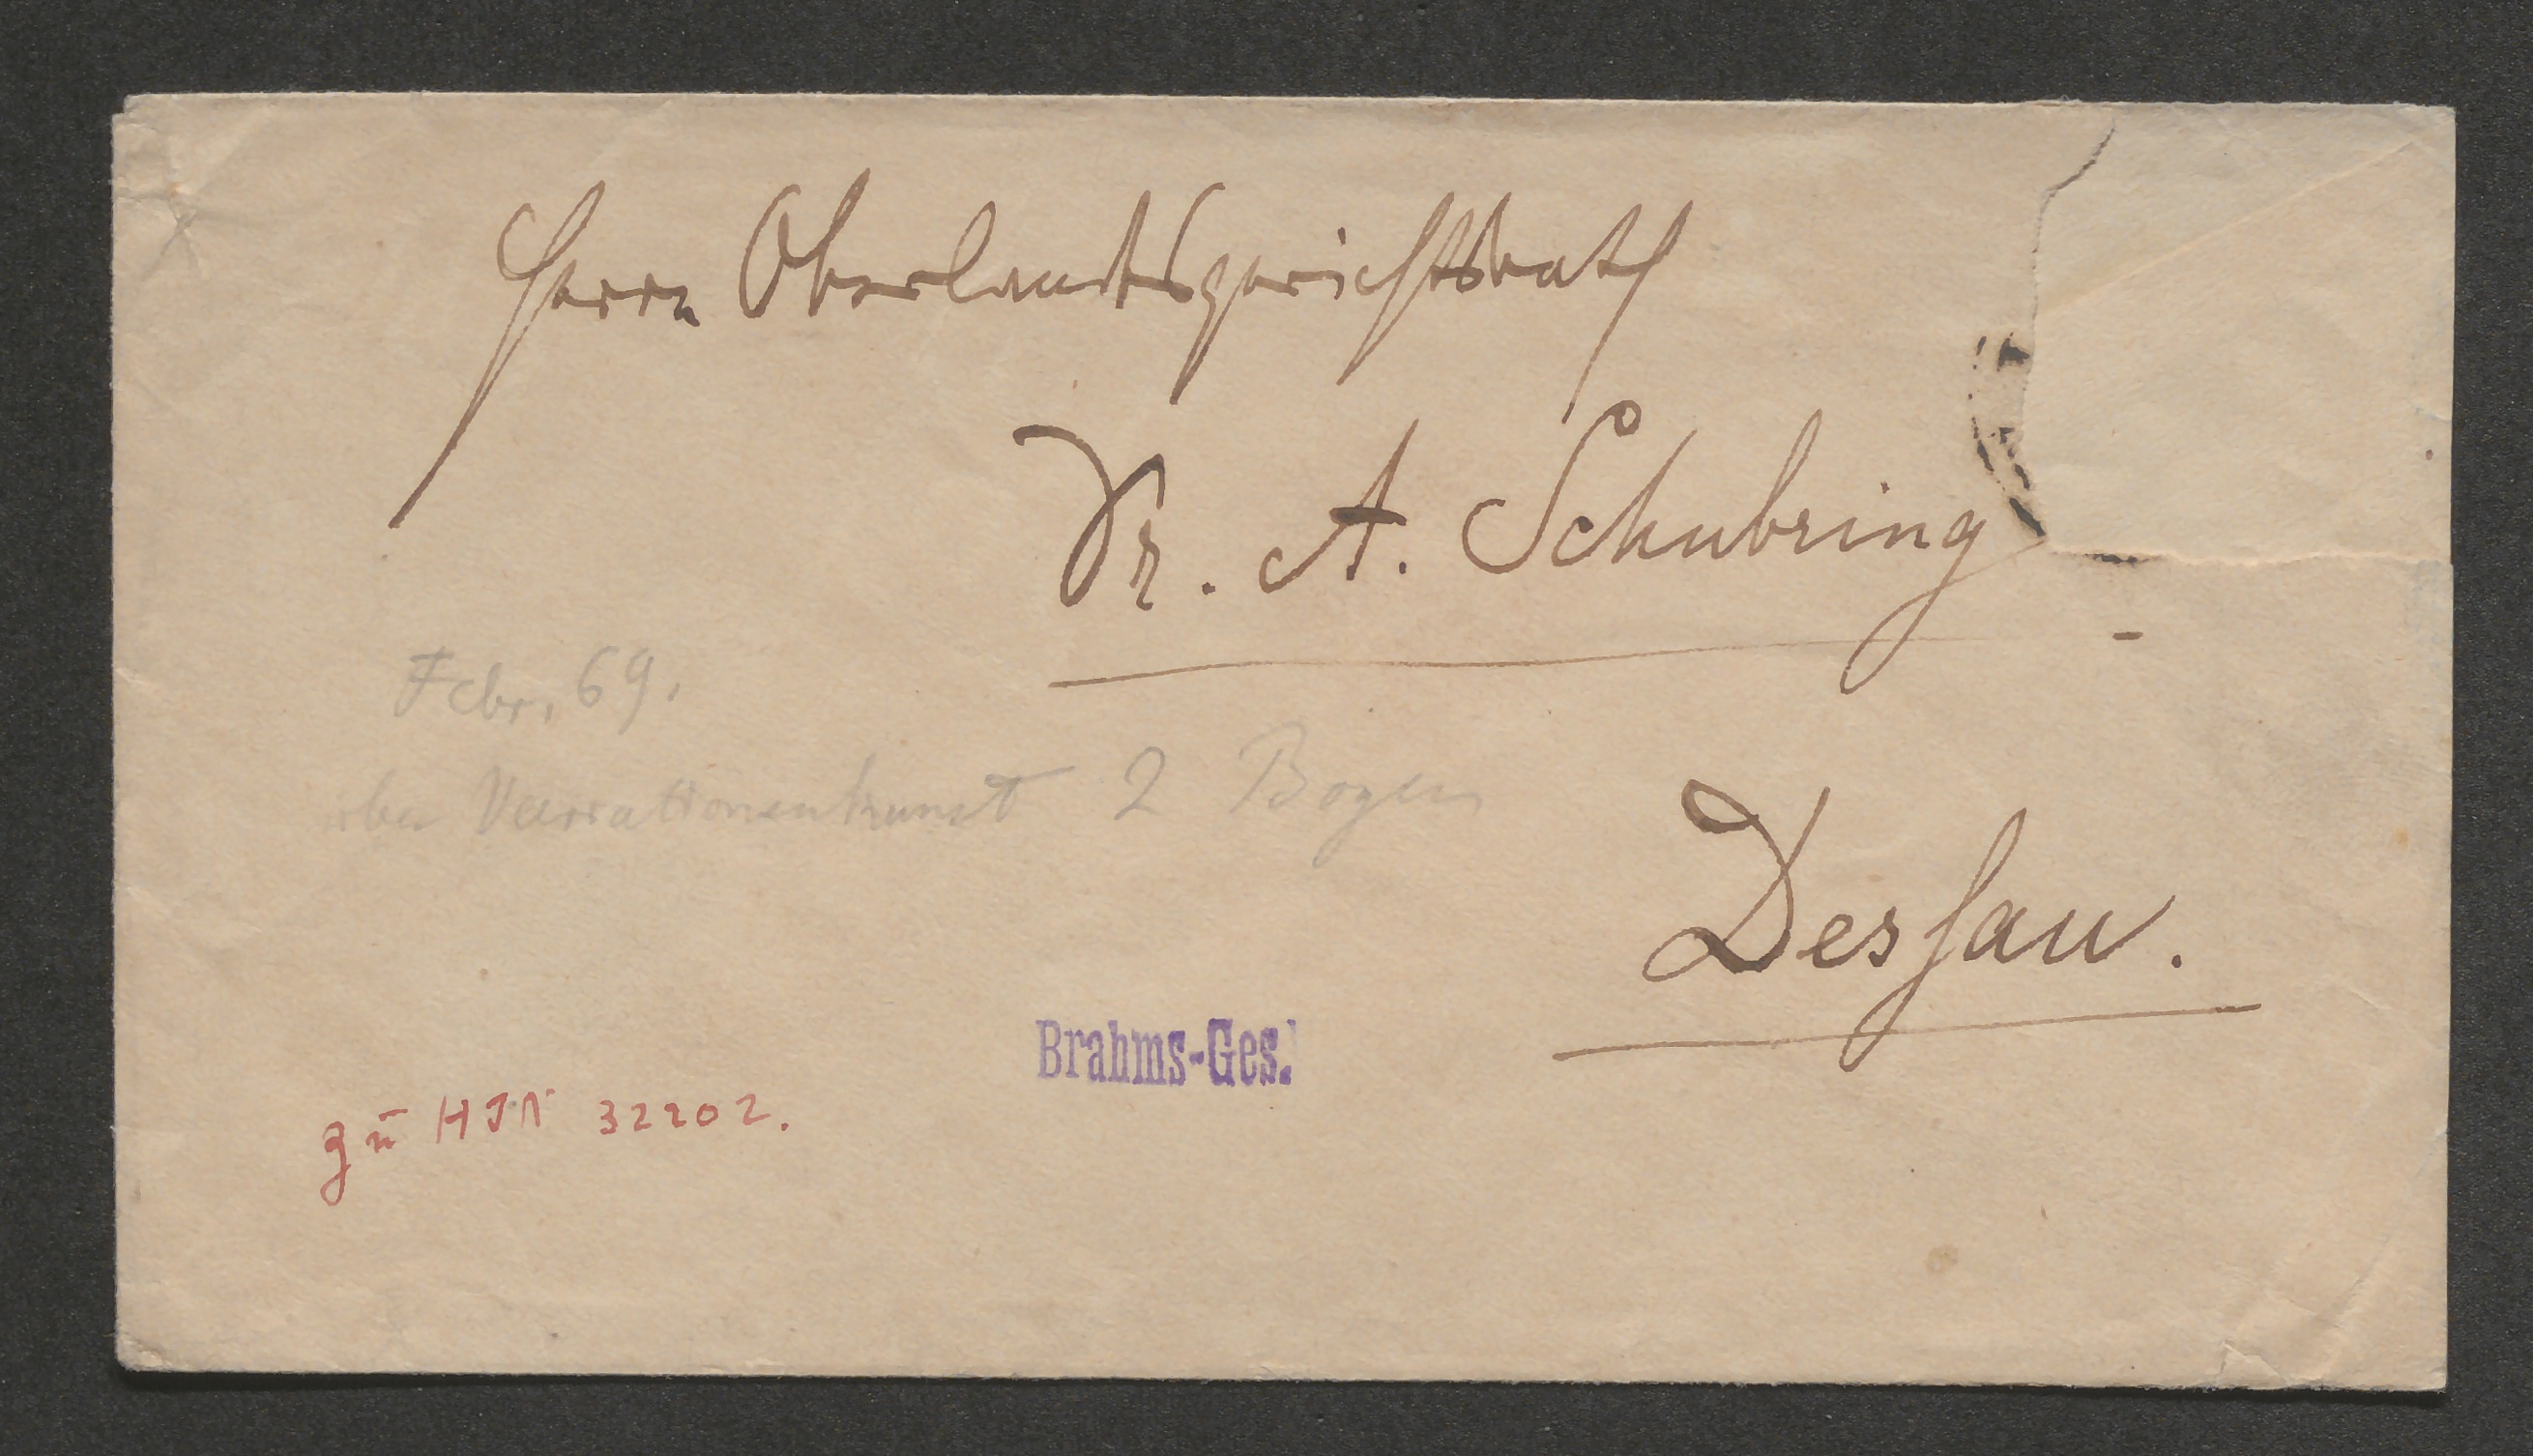 Herrn Oberlandesgerichtsrath
Dr. A. Schubring
Febr. 69.
über Variationenkunst 2 Bogen
Dessau.
Brahms-Ges.
zu HIN 32202.